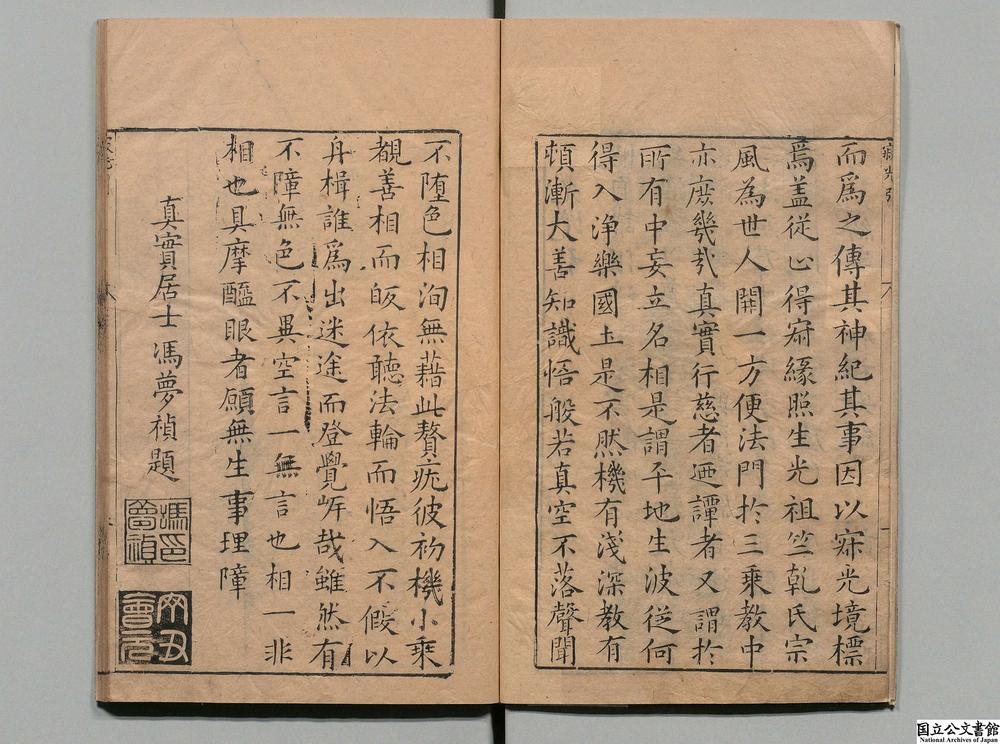 而爲之傳其神紀其事因以寂光境標
焉盖從心得寂緣照生光祖竺乾氏宗
風為世人開一方便法門於三乘教中
亦庶幾㢤真實行慈者迺譚者又謂於
所有中妄立名相是謂平地生波從何
得入浄樂國土是不然機有淺深教有
頓漸大善知識悟般若真空不落聲聞
不堕色相洵無藉此贅疣彼初機小乗
覩善相而皈依聽法輪而悟入不假以
舟楫誰爲出迷途而登覺岸哉雖然有
不障無色不異空言一無言也相一非
相也具摩醯眼者願無生事理障
真實居士馮夢禎題
馮夢禎印
丁丑會元
国立公文書館
National Archives of Japan